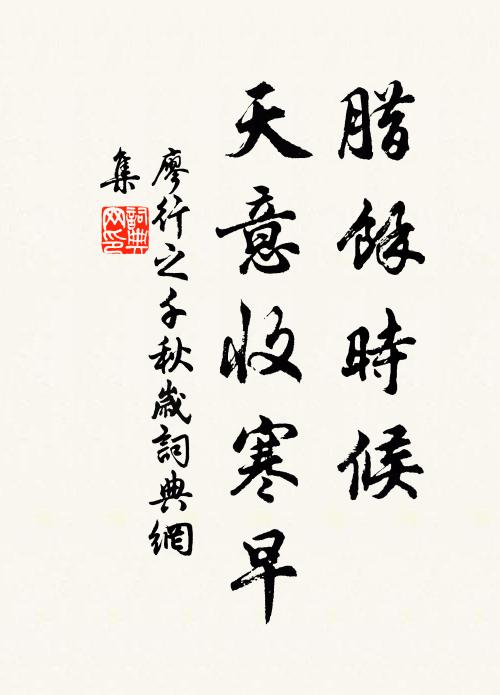 腊餘時候
天意收寒早
廖行之千秋歲詞典網
集
詞典
网印